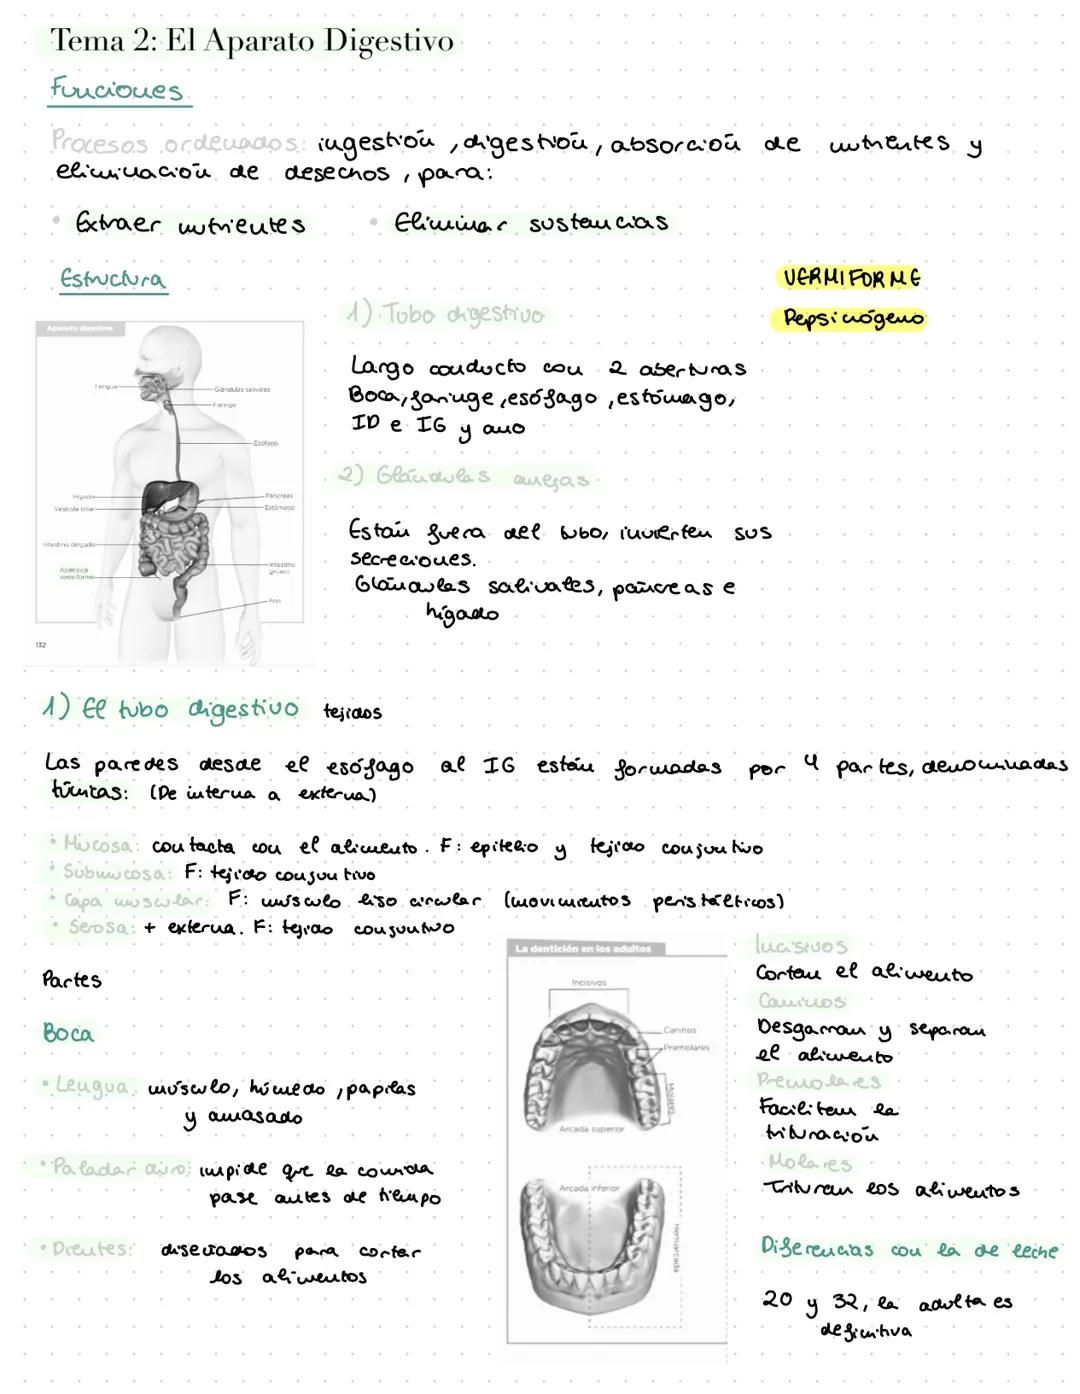 Tema 2: El Aparato Digestivo
Funciones
Procesos ordenados: ingestión, digestión, absorción de nutrientes y
eliminación de desechos, para:
• Extraer nutrientes • Eliminar sustancias
Estructura
VERMIFORME
Pepsinógeno
1) Tubo digestivo
Largo conducto con 2 aberturas
Boca, faringe, esófago, estómago,
ID e IG y ano
2) Glándulas anejas
Están fuera del tubo, invierten sus
secreciones.
Glándulas salivales, páncreas e
hígado
Aparato digestivo
Lengua
Glándulas salivales
Faringe
Esófago
Hígado
Páncreas
Vesícula biliar
Estómago
Intestino delgado
Apéndice
vermiforme
Intestino
grueso
Ano
132
1) El tubo digestivo tejidos
Las paredes desde el esófago al IG están formadas por 4 partes, denominadas
túnicas: (De interna a externa)
• Mucosa: contacta con el alimento. F: epitelio y tejido conjuntivo
• Submucosa: F: tejido conjuntivo
• Capa muscular: F: músculo liso circular (movimientos peristálticos)
• Serosa: + externa. F: tejido conjuntivo
Partes
Boca
• Lengua: músculo, húmedo, papilas
y amasado
• Paladar duro: impide que la comida
pase antes de tiempo
• Dientes: diseñados para cortar
los alimentos
La dentición en los adultos
Incisivos
Caninos
Premolares
Molares
Arcada superior
Arcada inferior
Hemiarcada
Incisivos
Cortan el alimento
Caninos
Desgarran y separan
el alimento
Premolares
Faciliten la
trituración
• Molares
Trituran los alimentos
Diferencias con la de leche
20 y 32, la adulta es
definitiva